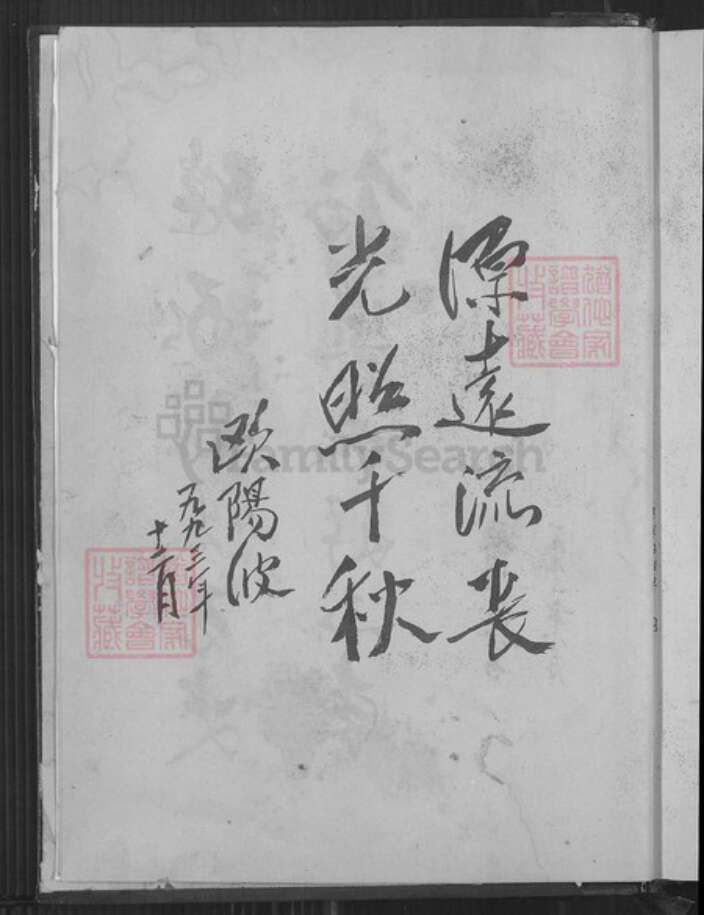 源遠流長
光照千秋
歐陽波
一九九三年
十二月
猶他家
譜學會
收藏
猶他家
譜學會
收藏
FamilySearch